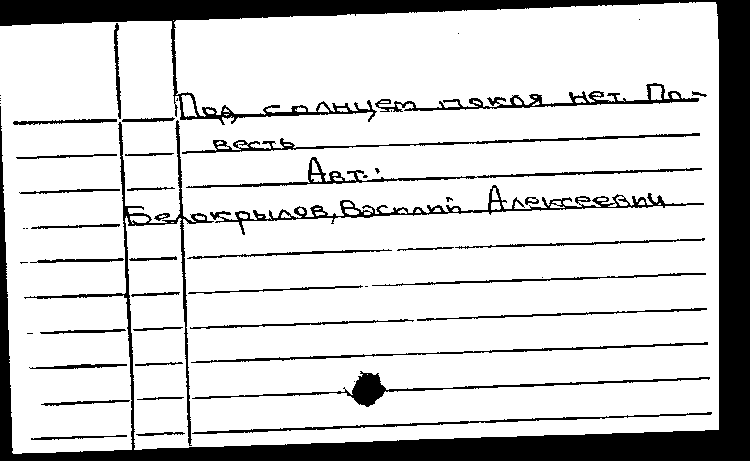 Под солнцем покоя нет. По-
весть
Авт.:
Белокрылов, Василий Алексеевич